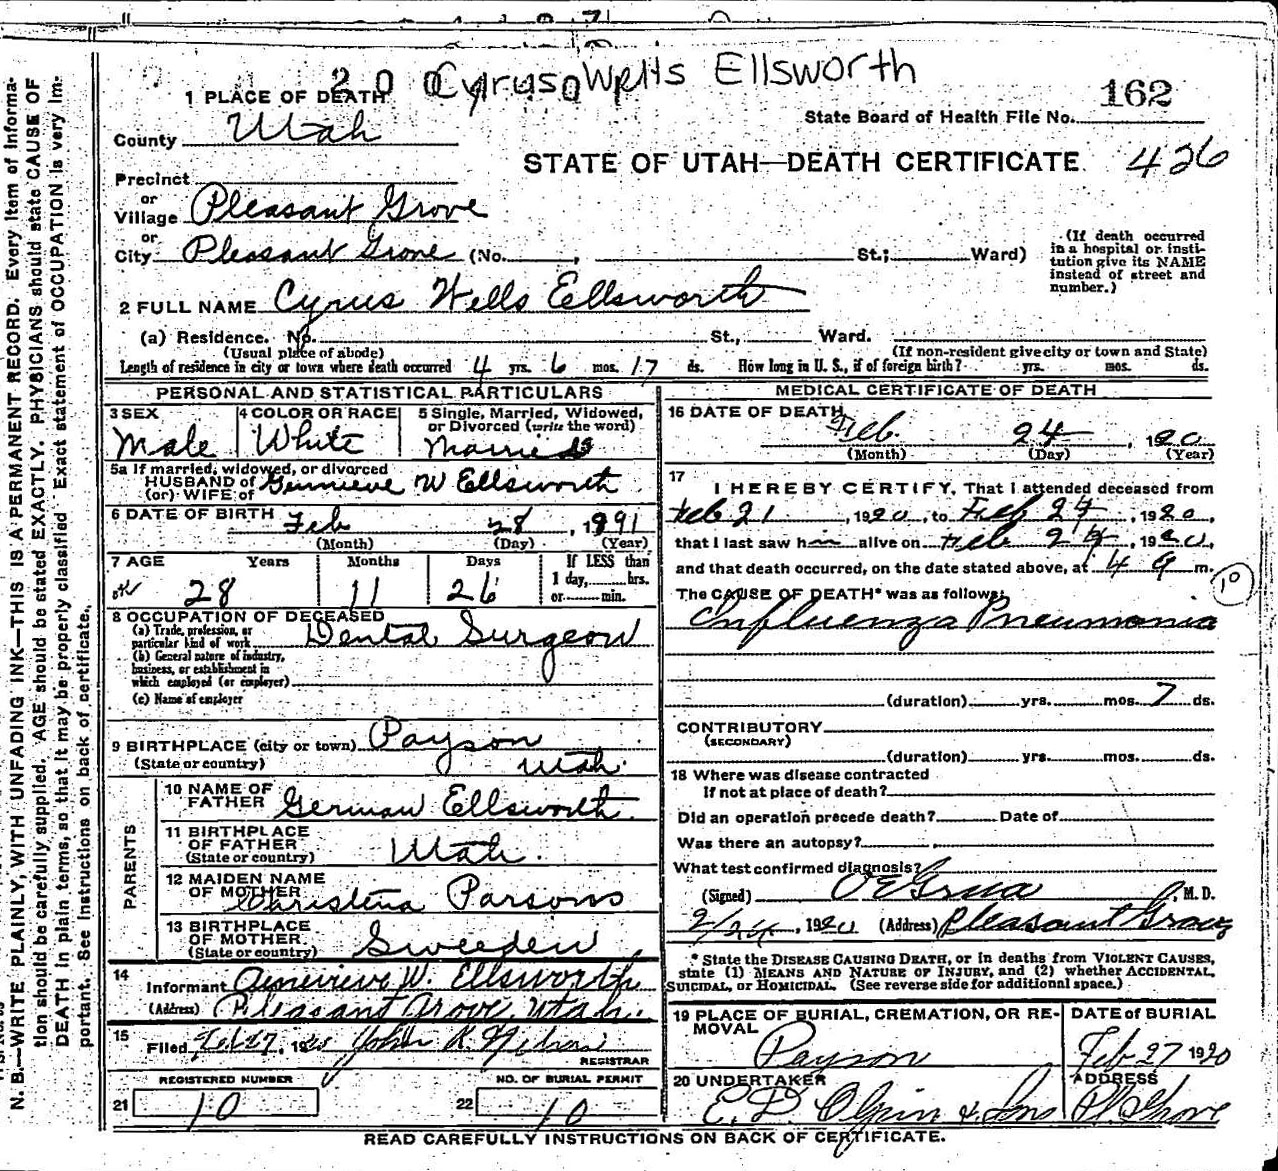 Cyrus Wells Ellsworth
2 0 0 0
162
1 PLACE OF DEATH
State Board of Health File No.
County Utah
STATE OF UTAH—DEATH CERTIFICATE 426
Precinct
or
Village Pleasant Grove
or
City Pleasant Grove (No. , St.; Ward)
(If death occurred in a hospital or institution give its NAME instead of street and number.)
2 FULL NAME Cyrus Wells Ellsworth
(a) Residence. No. St., Ward.
(Usual place of abode) (If non-resident give city or town and State)
Length of residence in city or town where death occurred 4 yrs. 6 mos. 17 ds. How long in U. S., if of foreign birth? yrs. mos. ds.
PERSONAL AND STATISTICAL PARTICULARS
3 SEX 4 COLOR OR RACE 5 Single, Married, Widowed, or Divorced (write the word)
Male White Married
5a If married, widowed, or divorced
HUSBAND of Genieve W Ellsworth
(or) WIFE of
6 DATE OF BIRTH Feb 28, 1891
(Month) (Day) (Year)
7 AGE Years Months Days If LESS than
1 day, hrs.
28 11 26 or min.
8 OCCUPATION OF DECEASED
(a) Trade, profession, or particular kind of work Dental Surgeon
(b) General nature of industry,
business, or establishment in
which employed (or employer)
(c) Name of employer
9 BIRTHPLACE (city or town) Payson
(State or country) Utah.
PARENTS
10 NAME OF FATHER German Ellsworth
11 BIRTHPLACE OF FATHER (State or country) Utah.
12 MAIDEN NAME OF MOTHER Christena Parsons
13 BIRTHPLACE OF MOTHER (State or country) Sweeden
14 Informant Genevieve W. Ellsworth
(Address) Pleasant Grove, Utah.
15 Filed Feb 27, 1920 John K.
REGISTRAR
REGISTERED NUMBER NO. OF BURIAL PERMIT
21 10 22 10
MEDICAL CERTIFICATE OF DEATH
16 DATE OF DEATH
Feb. 24, 1920
(Month) (Day) (Year)
17 I HEREBY CERTIFY, That I attended deceased from
Feb 21, 1920, to Feb 24, 1920,
that I last saw him alive on Feb 24, 1920,
and that death occurred, on the date stated above, at 4 a m.
10
The CAUSE OF DEATH* was as follows:
Influenza Pneumonia
(duration) yrs. mos. 7 ds.
CONTRIBUTORY
(SECONDARY)
(duration) yrs. mos. ds.
18 Where was disease contracted
If not at place of death?
Did an operation precede death? Date of
Was there an autopsy?
What test confirmed diagnosis?
(Signed) O E Grua, M. D.
2/24, 1920 (Address) Pleasant Grove
* State the DISEASE CAUSING DEATH, or in deaths from VIOLENT CAUSES,
state (1) MEANS AND NATURE OF INJURY, and (2) whether ACCIDENTAL,
SUICIDAL, or HOMICIDAL. (See reverse side for additional space.)
19 PLACE OF BURIAL, CREMATION, OR REMOVAL DATE of BURIAL
Payson Feb 27 1920
20 UNDERTAKER ADDRESS
E. D. Olpin & Sons Pl. Grove
READ CAREFULLY INSTRUCTIONS ON BACK OF CERTIFICATE.
N. B.—WRITE PLAINLY, WITH UNFADING INK—THIS IS A PERMANENT RECORD. Every item of information should be carefully supplied. AGE should be stated EXACTLY. PHYSICIANS should state CAUSE OF DEATH in plain terms, so that it may be properly classified. Exact statement of OCCUPATION is very important. See instructions on back of certificate.